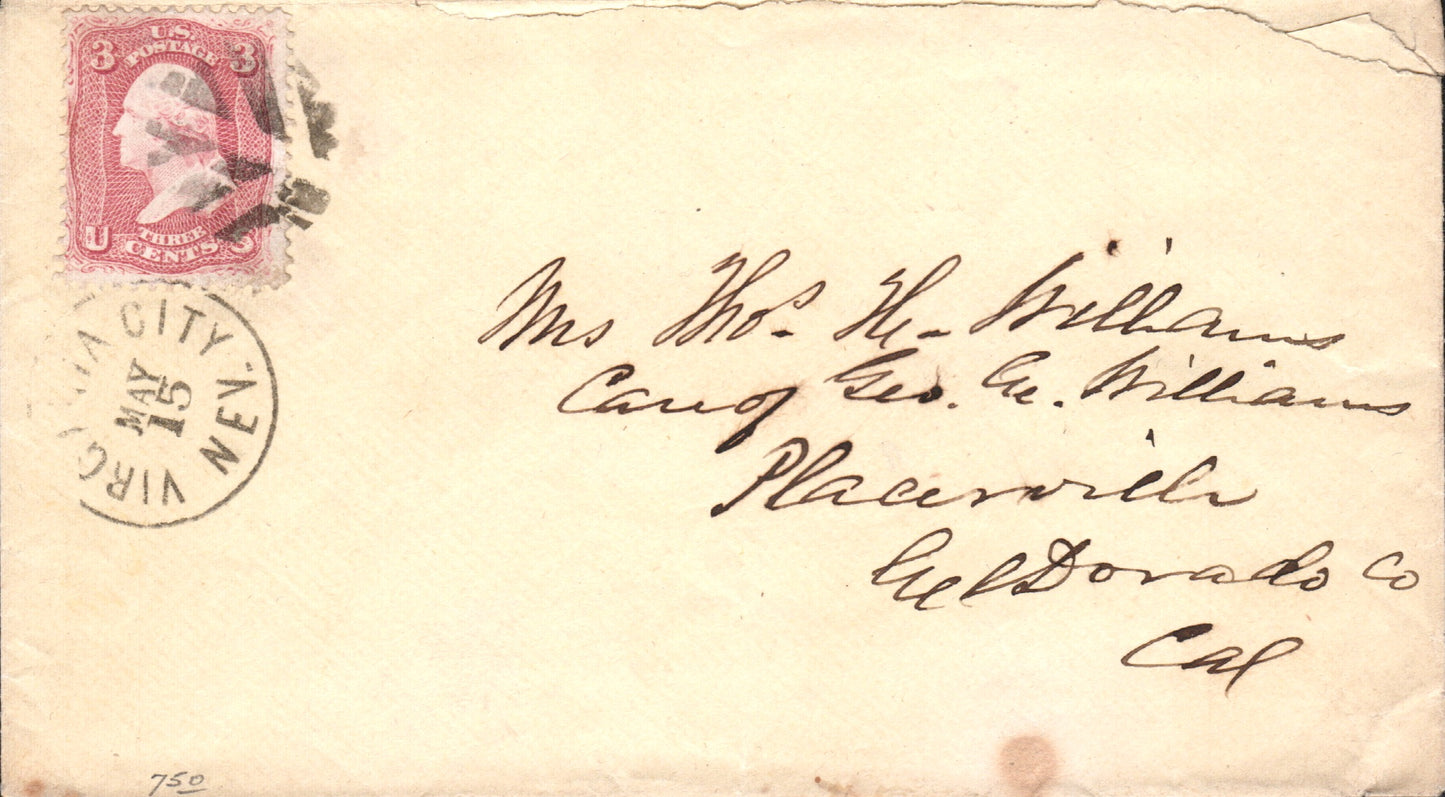 3 U.S. 3
POSTAGE
U
THREE
CENTS
VIRGINIA CITY. NEV.
MAY
15
Mrs Thos. H. Williams
Care of Geo. E. Williams
Placerville
El Dorado Co
Cal
750